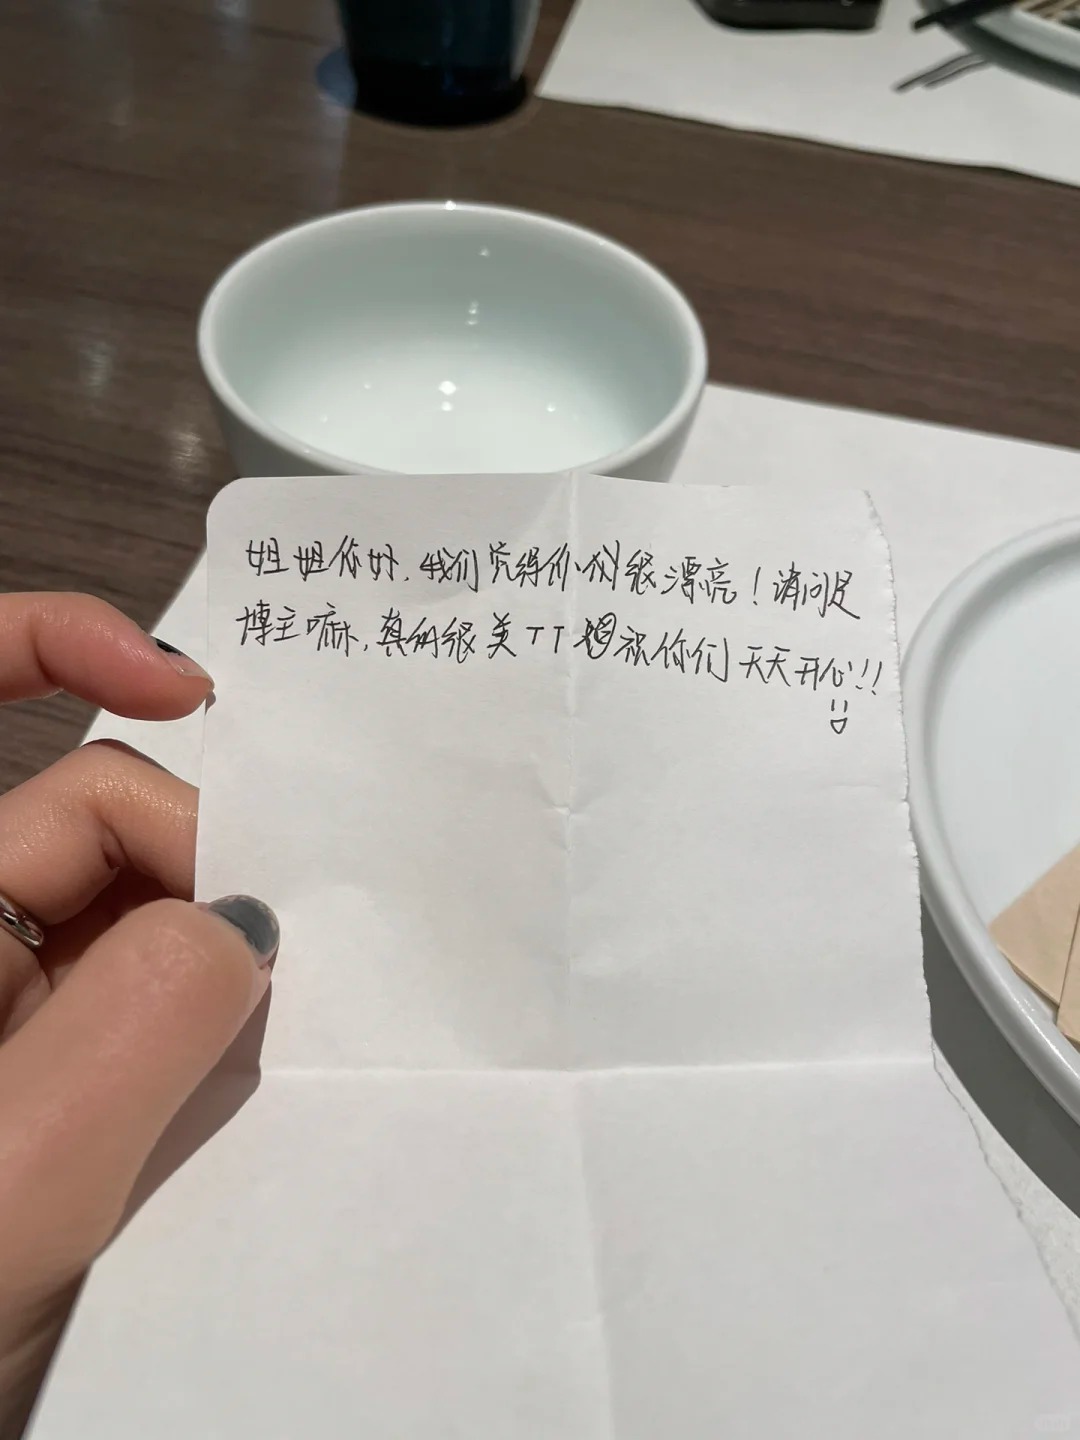 姐姐你好，我们觉得你们很漂亮！请问是
博主嘛，真的很美TT 祝你们天天开心!!